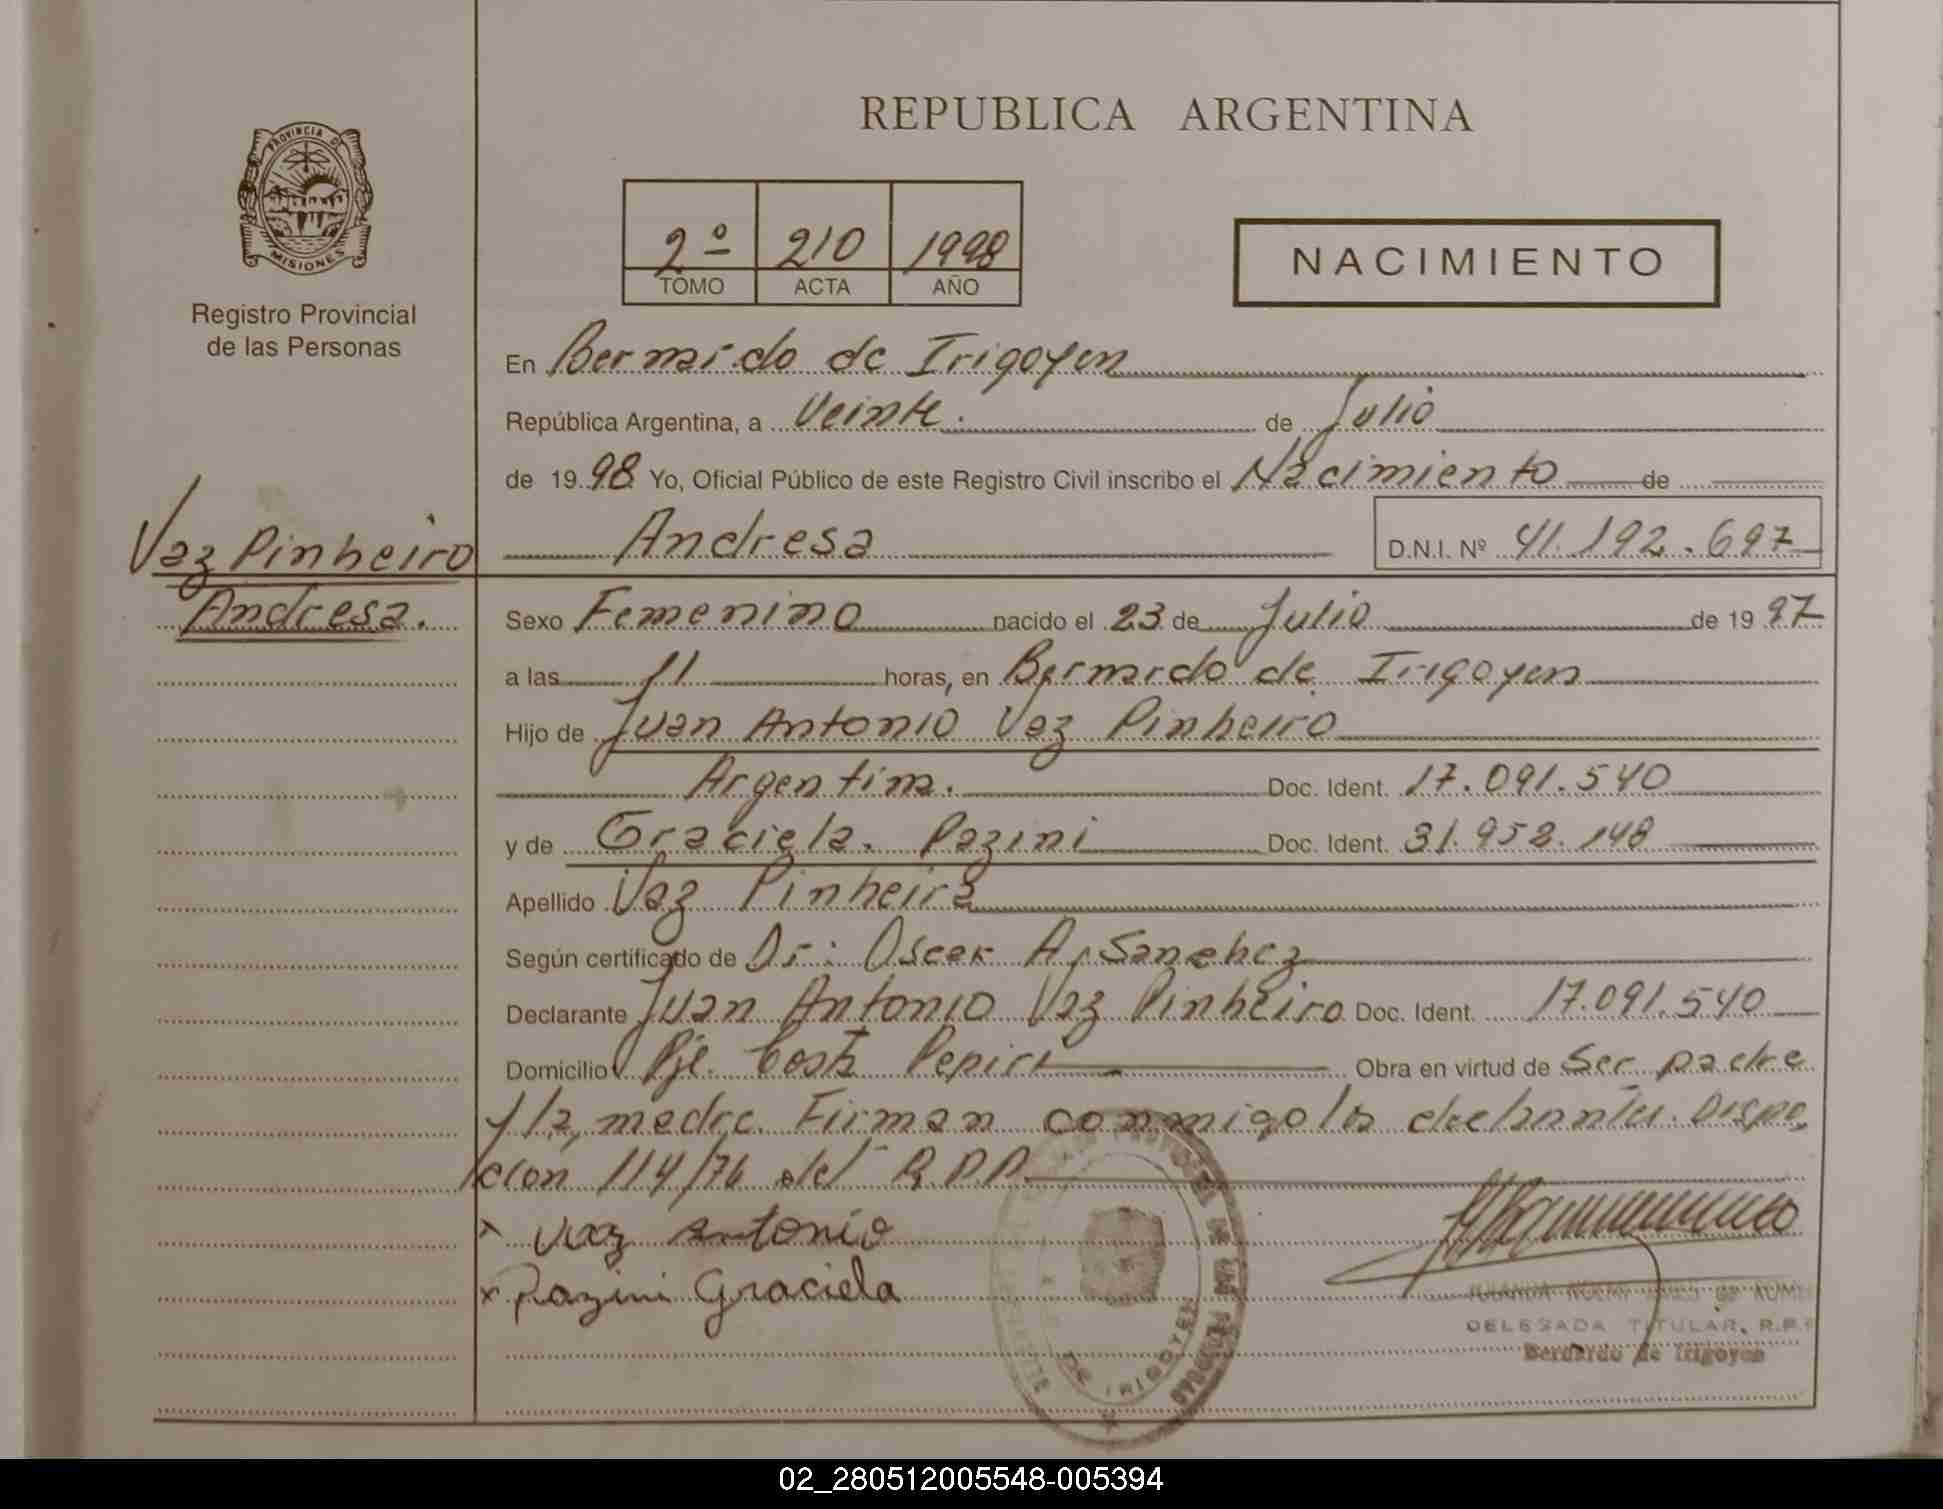 REPUBLICA ARGENTINA
PROVINCIA DE
MISIONES
Registro Provincial
de las Personas
2º 210 1998
TOMO ACTA AÑO
NACIMIENTO
En Bernardo de Irigoyen
República Argentina, a Veinte. de Julio
de 1998 Yo, Oficial Público de este Registro Civil inscribo el Nacimiento de
Vaz Pinheiro
Andresa.
Andresa D.N.I. Nº 41.192.697
Sexo Femenino nacido el 23 de Julio de 1997
a las 11 horas, en Bernardo de Irigoyen
Hijo de Juan Antonio Vaz Pinheiro
Argentina. Doc. Ident. 17.091.540
y de Graciela. Pazini Doc. Ident. 31.952.148
Apellido Vaz Pinheiro
Según certificado de Dr: Oscar A. Sanchez
Declarante Juan Antonio Vaz Pinheiro Doc. Ident. 17.091.540
Domicilio Pje. Costa Pepiri Obra en virtud de Ser padre
y la madre. Firman conmigo los
114/76 del R.P.P.
x Vaz Antonio
x Pazini Graciela
DELEGADA TITULAR, R.P.
Bernardo de Irigoyen
DE IRIGOYEN
02_280512005548-005394